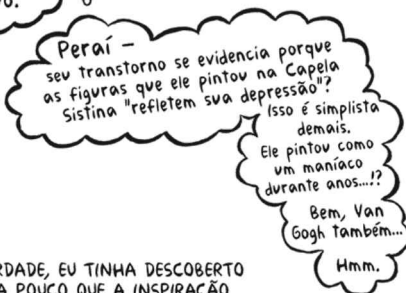 Peraí –
seu transtorno se evidencia porque
as figuras que ele pintou na Capela
Sistina "refletem sua depressão"?
Isso é simplista
demais.
Ele pintou como
um maníaco
durante anos...!?
Bem, Van
Gogh também...
Hmm.
RDADE, EU TINHA DESCOBERTO
A POUCO QUE A INSPIRAÇÃO